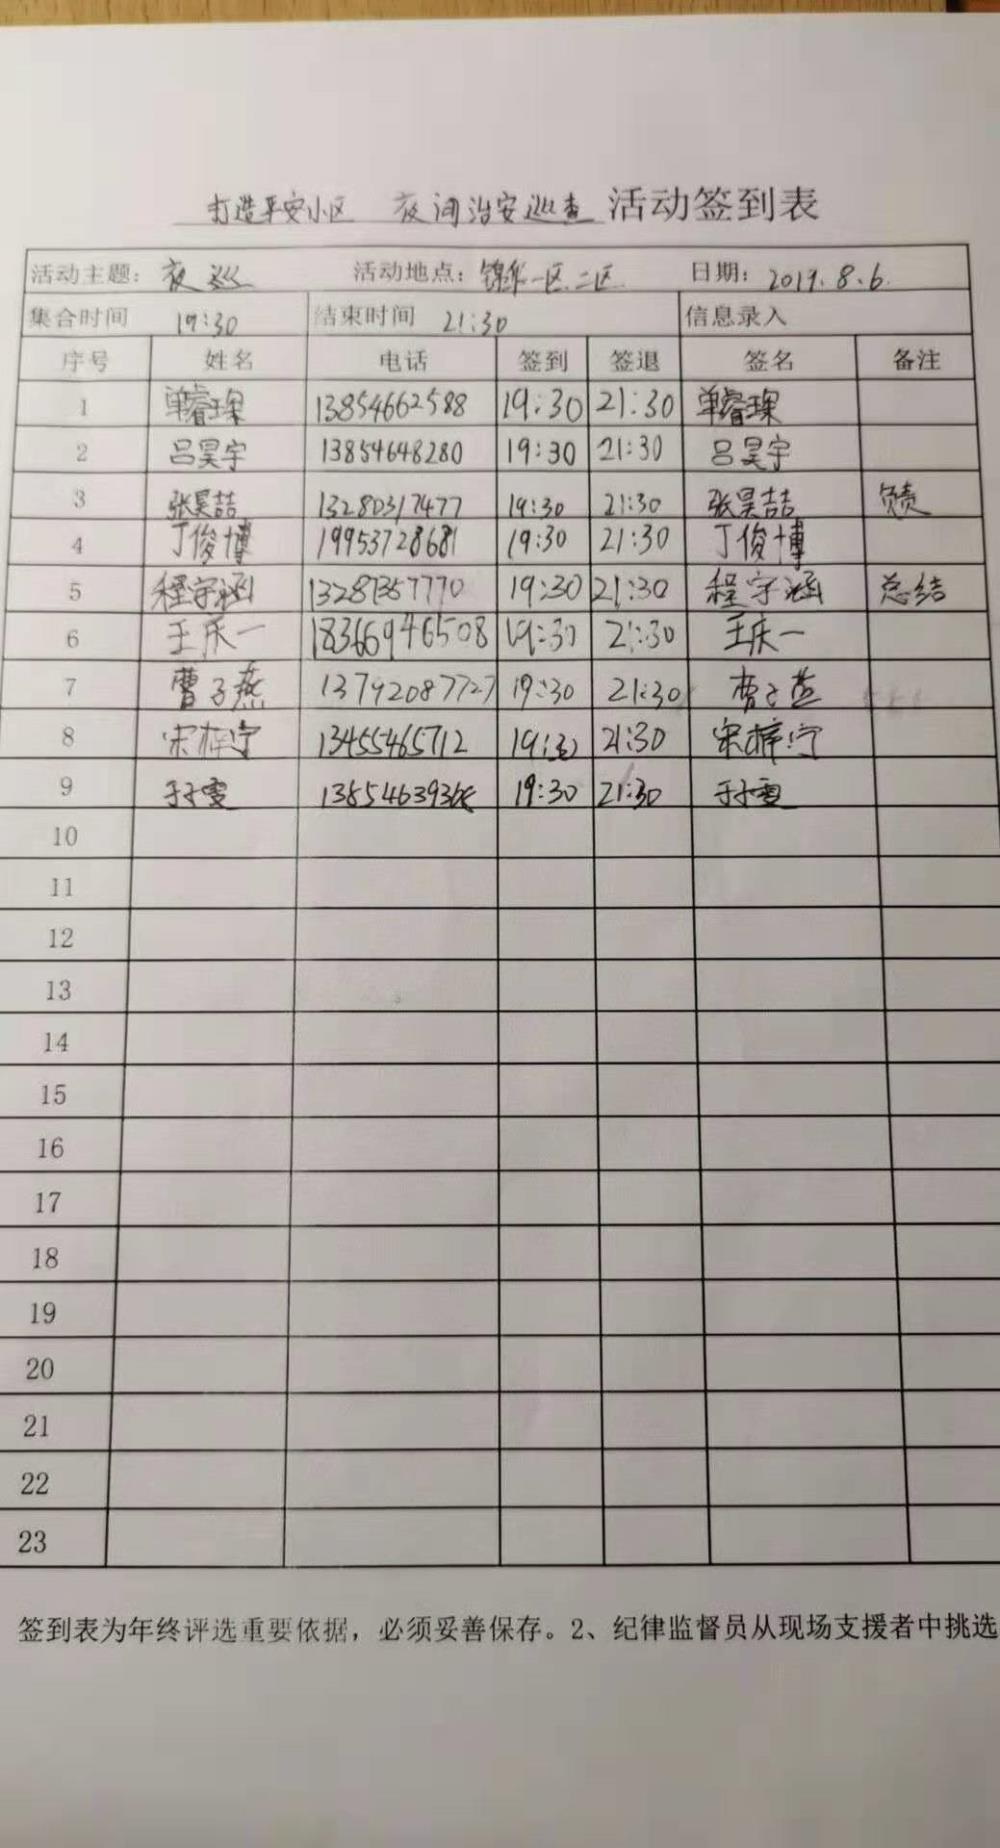 打造平安小区 夜间治安巡查 活动签到表
活动主题：夜巡 活动地点：锦华一区.二区 日期：2019.8.6.
集合时间 19:30 结束时间 21:30 信息录入
序号 姓名 电话 签到 签退 签名 备注
1 单睿琛 13854662588 19:30 21:30 单睿琛
2 吕昊宇 13854648280 19:30 21:30 吕昊宇
3 张昊喆 13280317477 19:30 21:30 张昊喆 负责
4 丁俊博 19953728681 19:30 21:30 丁俊博
5 程宇涵 19:30 21:30 程宇涵 总结
6 王庆一 18366946508 19:30 21:30 王庆一
7 曹子燕 13792087727 19:30 21:30 曹子燕
8 宋梓宁 13455465712 19:30 21:30 宋梓宁
9 19:30 21:30
10
11
12
13
14
15
16
17
18
19
20
21
22
23
签到表为年终评选重要依据，必须妥善保存。2、纪律监督员从现场支援者中挑选